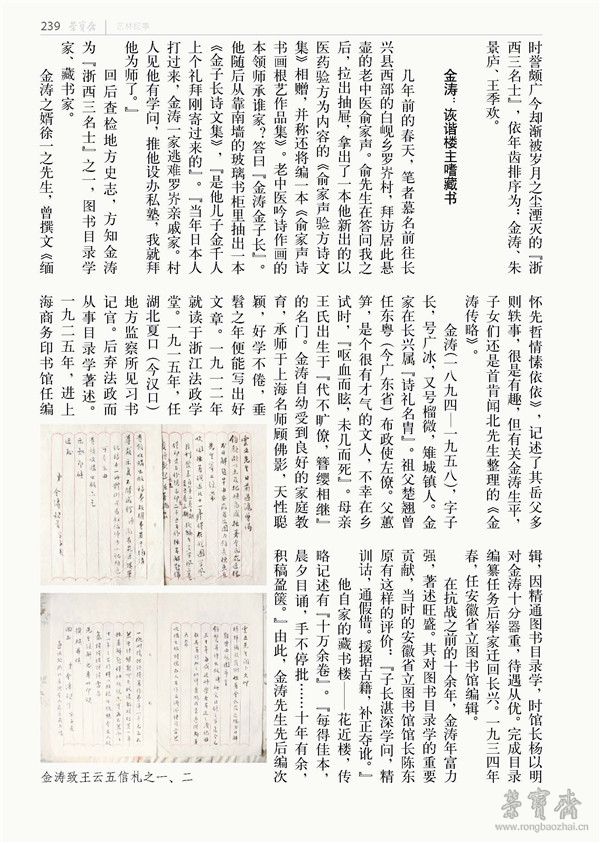 239 荣宝斋 艺林纪事
时誉颇广今却渐被岁月之尘湮灭的『浙
西三名士』，依年齿排序为：金涛、朱
景庐、王季欢。
金涛：诙谐楼主嗜藏书
几年前的春天，笔者慕名前往长
兴县西部的白岘乡罗岕村，拜访居此悬
壶的老中医俞家声。俞先生在答问我之
后，拉出抽屉，拿出了一本他新出的以
医药验方为内容的《俞家声验方诗文
集》相赠，并称还将编一本《俞家声诗
书画根艺作品集》。老中医吟诗作画的
本领师承谁家？答曰『金涛金子长』。
他随后从靠南墙的玻璃书柜里抽出一本
《金子长诗文集》，『是他儿子金千人
上个礼拜刚寄过来的』。『当年日本人
打过来，金涛一家逃难罗岕亲戚家。村
人见他有学问，推他设办私塾，我就拜
他为师了。』
回后查检地方史志，方知金涛
为『浙西三名士』之一，图书目录学
家、藏书家。
金涛之婿徐一之先生，曾撰文《缅
怀先哲情愫依依》，记述了其岳父多
则轶事，很是有趣，但有关金涛生平，
子女们还是首肯闻北先生整理的《金
涛传略》。
金涛（一八九四—一九五八），字子
长，号广冰，又号榴微，雉城镇人。金
家在长兴属『诗礼名胄』。祖父楚翘曾
任东粤（今广东省）布政使左僚。父蕙
笋，是个很有才气的文人，不幸在乡
试时，『呕血而眩，未几而死』。母亲
王氏出生于『代不旷僚，簪缨相继』
的名门。金涛自幼受到良好的家庭教
育，承师于上海名师顾佛影，天性聪
颖，好学不倦，垂
髫之年便能写出好
文章。一九一二年
就读于浙江法政学
堂。一九一五年，任
湖北夏口（今汉口）
地方监察所见习书
记官。后弃法政而
从事目录学著述。
一九二五年，进上
海商务印书馆任编
辑，因精通图书目录学，时馆长杨以明
对金涛十分器重，待遇从优。完成目录
编纂任务后举家迁回长兴。一九三四年
春，任安徽省立图书馆编辑。
在抗战之前的十余年，金涛年富力
强，著述旺盛。其对图书目录学的重要
贡献，当时的安徽省立图书馆馆长陈东
原有这样的评价：『子长湛深学问，精
训诂，通假借。援据古籍，补正夺讹。』
他自家的藏书楼——花近楼，传
略记述有『十万余卷』。『每得佳本，
晨夕目诵，手不停批……十年有余，
积稿盈箧。』由此，金涛先生先后编次
金涛致王云五信札之一、二
荣宝斋
www.rongbaozhai.cn